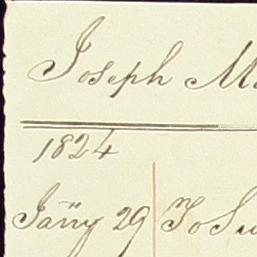 Joseph M
1824
Jañy 29 To Su